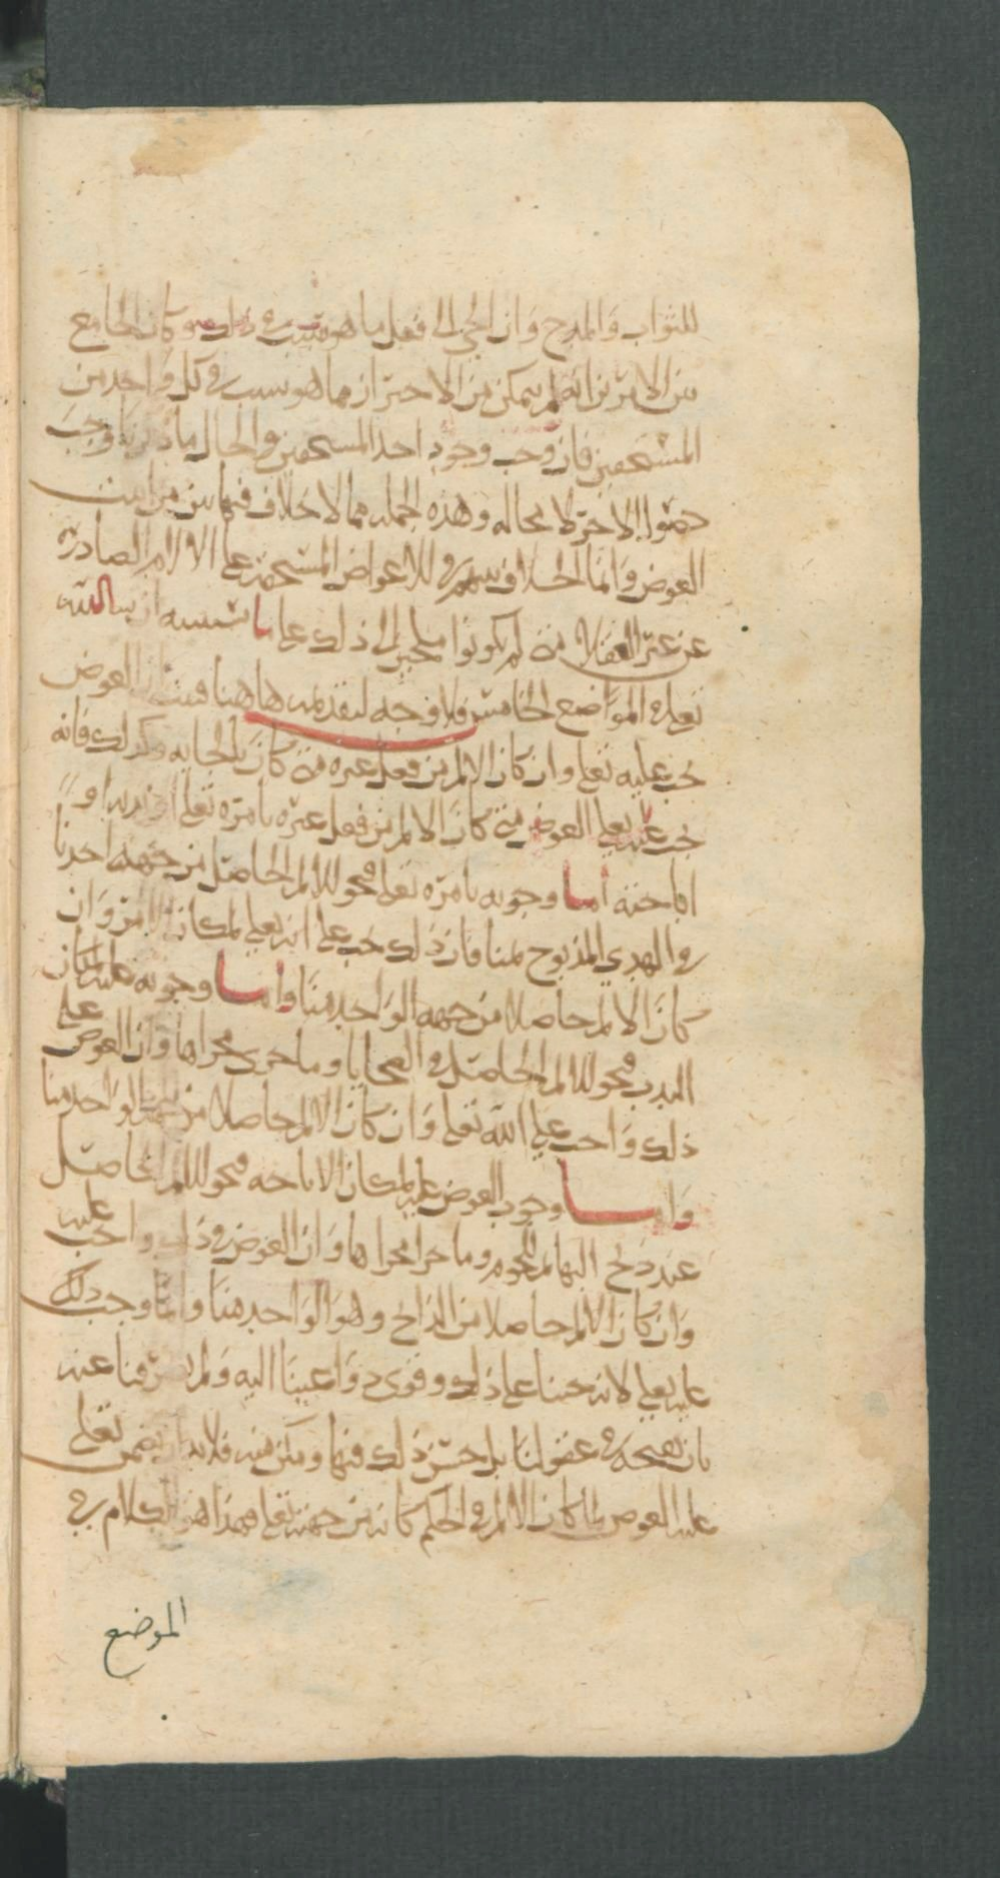 للثواب والمدح وان الجي الى فعل ما هو سبب في ذلك وكان الجامع
بين الامرين انه لم يتمكن من الاحتراز مما هو سبب في كل واحد من
المستحقين فان وجب وجود احد المستحقين والحال ما ذكرنا وجب
حصول الاخر لا محاله وهذه الجمله مما لا خلاف فيها بين من اثبت
العوض وانما الخلاف بينهم في الاعواض المستحقه على الالام الصادره
عن غير العقلا متى لم يكونوا ملجين الى ذلك على ما نبينه ان شا الله
تعلى في الموضع الخامس فلا وجه لتقدمه هاهنا العوض
يجب عليه تعلى وان كان الالم من فعل غيره متى كان بالجايه وكذلك فانه
يجب عليه تعلى العوض متى كان الالم من فعل غيره بامره تعلى او ندبه او
اباحته اما وجوبه بامره تعلى فنحو الالم الحاصل من جهه احدنا
في الهدي المذبوح بمنا فان ذلك يجب على الله تعلى لمكان الامر وان
كان الالم حاصلا من جهه الواحد منا واما وجوبه عليه لمكان
الندب فنحو الالم الحاصل في الضحايا وما جرى مجراها وان العوض على
ذلك واجب على الله تعلى وان كان الالم حاصلا من جهه الواحد منا
واما وجوب العوض عليه لمكان الاباحه فنحو الالم الحاصل
عند ذبح البهايم للحوم وما جرا مجراها وان العوض في ذلك واجب عليه
وان كان الالم حاصلا من الذابح وهو الواحد منا وانما وجب ذلك
عليه تعلى لانه حثنا على ذلك وقوى دواعينا اليه ولم يصرفنا عنه
بان يقبحه في عقولنا بل حسن ذلك فيها ومكن منه فلا بد ان يضمن تعلى
عليه العوض لما كان الالم في الحكم كانه من جهته تعلى فهذا هو الكلام في
الموضع